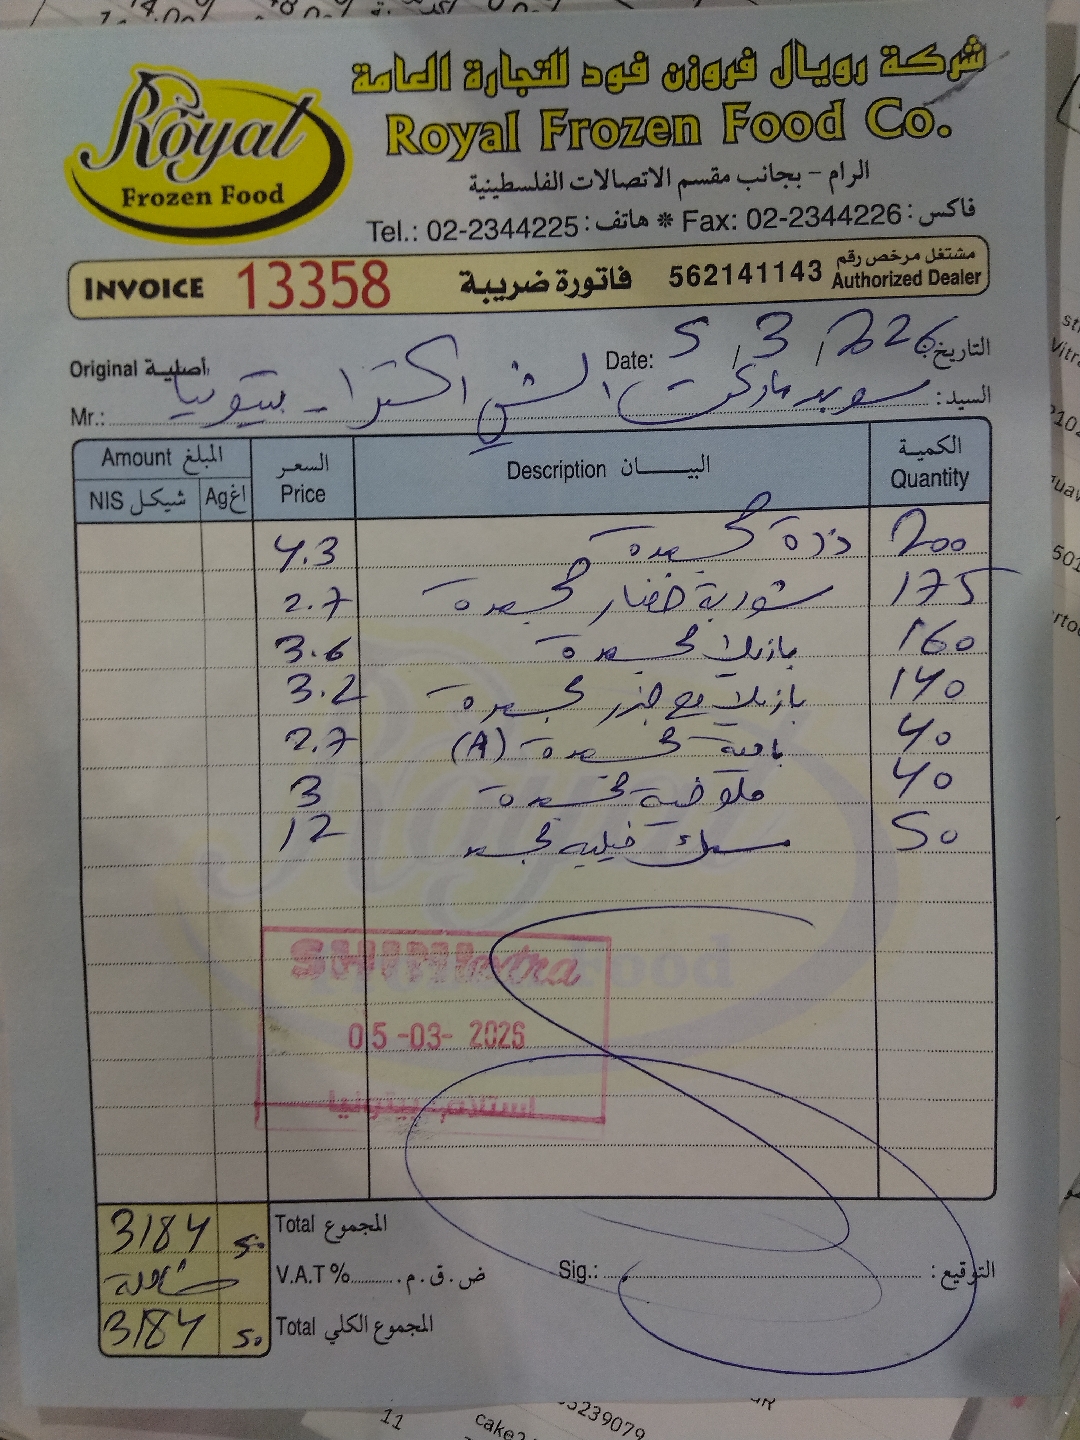 شركة رويال فروزن فود للتجارة العامة
Royal Frozen Food Co.
Royal
Frozen Food
الرام - بجانب مقسم الاتصالات الفلسطينية
Tel.: 02-2344225 : هاتف * Fax: 02-2344226 : فاكس
INVOICE 13358 فاتورة ضريبة 562141143 مشتغل مرخص رقم Authorized Dealer
Original أصلية Date: 5 / 3 / 2026 التاريخ:
Mr.: سوبر ماركت الشني اكسترا - بيتونيا السيد:
Amount المبلغ السعر Price Description البيـــــان الكمية Quantity
NIS شيكل Ag اغ
4.3 ذرة مجمدة 200
2.7 شوربة خضار مجمدة 175
3.6 بازيلا مجمدة 160
3.2 بازيلا مع جزر مجمدة 140
2.7 بامية مجمدة (A) 40
3 ملوخية مجمدة 40
12 سمك فيليه مجمد 50
SHINI extra
05-03-2026
استلام بيتونيا
3184 50 Total المجموع
شاملة V.A.T % ض.ق.م. Sig.: التوقيع:
3184 50 Total المجموع الكلي
11
cake
3239079